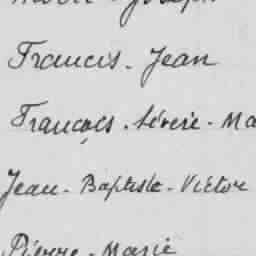 Joseph
Francis - Jean
François - Sévère - Ma
Jean - Baptiste - Victor
Pierre - Marie